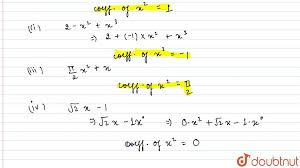 coeff. of x² = 1
(ii) 2 - x² + x³
⇒ 2 + (-1) × x² + x³
coeff. of x² = -1
(iii) π/2 x² + x
coeff. of x² = π/2
(iv) √2 x - 1
⇒ √2 x - 1x⁰ ⇒ 0·x² + √2 x - 1·x⁰
coeff. of x² = 0
doubtnut